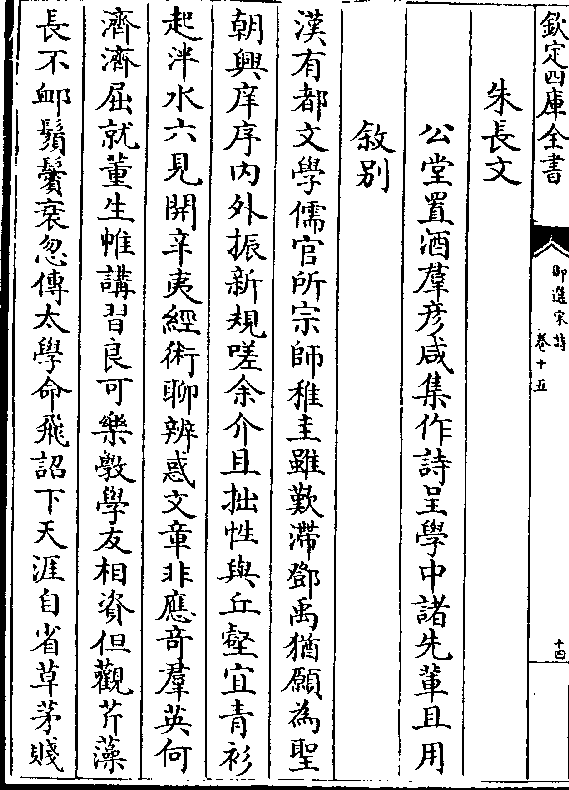 欽定四庫全書
御選宋詩 卷十五
十四
朱長文
公堂置酒羣彦咸集作詩呈學中諸先軰且用
敘别
漢有都文學儒官所宗師稚圭雖歎滯鄧禹猶願為聖
朝興庠序内外振新規嗟余介且拙性與丘壑宜青衫
起泮水六見開辛夷經術聊辨惑文章非應竒羣英何
濟濟屈就董生帷講習良可樂斆學友相資但觀芹藻
長不衂鬚鬢衰忽傳太學命飛詔下天涯自省草茅賤